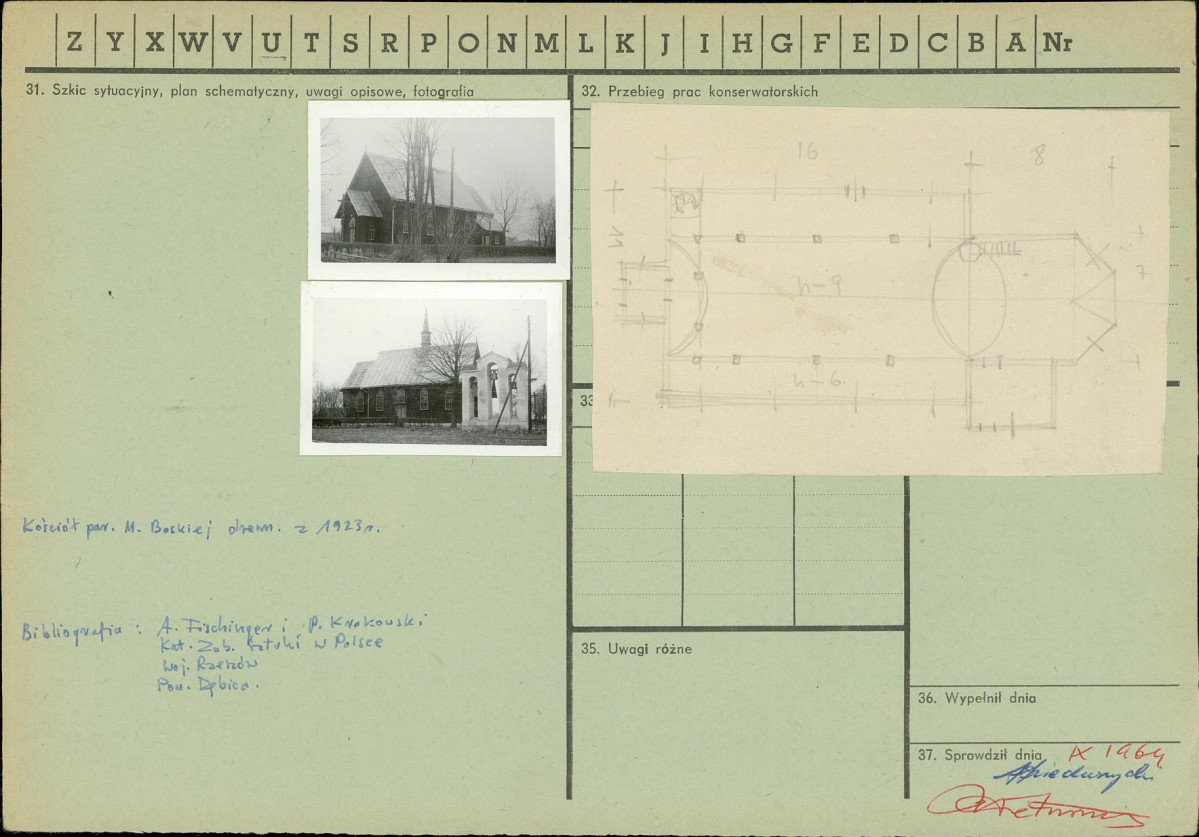 Z Y X W V U T S R P O N M L K J I H G F E D C B A Nr
31. Szkic sytuacyjny, plan schematyczny, uwagi opisowe, fotografia
32. Przebieg prac konserwatorskich
16
8
11
7
h-9
h-6
33
Kościół par. M. Boskiej drewn. z 1923 r.
Bibliografia : A. Fischinger i P. Krakowski
Kat. Zab. Sztuki w Polsce
woj. Rzeszów
Pow. Dębica.
35. Uwagi różne
36. Wypełnił dnia
37. Sprawdził dnia IX 1964